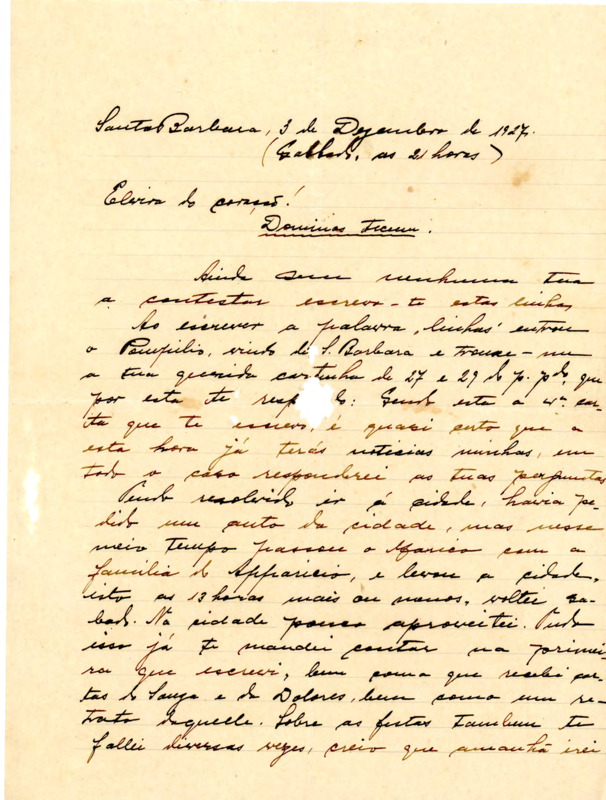 Santa Barbara, 3 de Dezembro de 1927.
(Sabbado, as 21 horas)
Elvira do coração!
Dominus tecum.
Ainda sem nenhuma tua
a contestar escrevo-te estas linhas
Ao escrever a palavra, linhas entrou
o Pompilio, vindo de S. Barbara e trouxe-me
a tua querida cartinha de 27 e 29 do p. pdo, que
por esta te respondo: Sendo esta a car-
ta que te escrevo, é quasi certo que a
esta hora já terás noticias minhas, em
todo o caso responderei as tuas perguntas
Tendo resolvido ir á cidade, havia pe-
dido um auto da cidade, mas nesse
meio tempo passou o Marico com a
familia do Apparicio, e levou a cidade,
isto as 13 horas mais ou menos, voltei sa-
bado. Na cidade pouco aproveitei. Tudo
isso já te mandei contar na primei-
ra que escrevi, bem como que recebi car-
tas do Souza e da Dolores, bem como um re-
trato daquelle. Sobre as festas tambem te
fallei diversas vezes, creio que amanhã irei